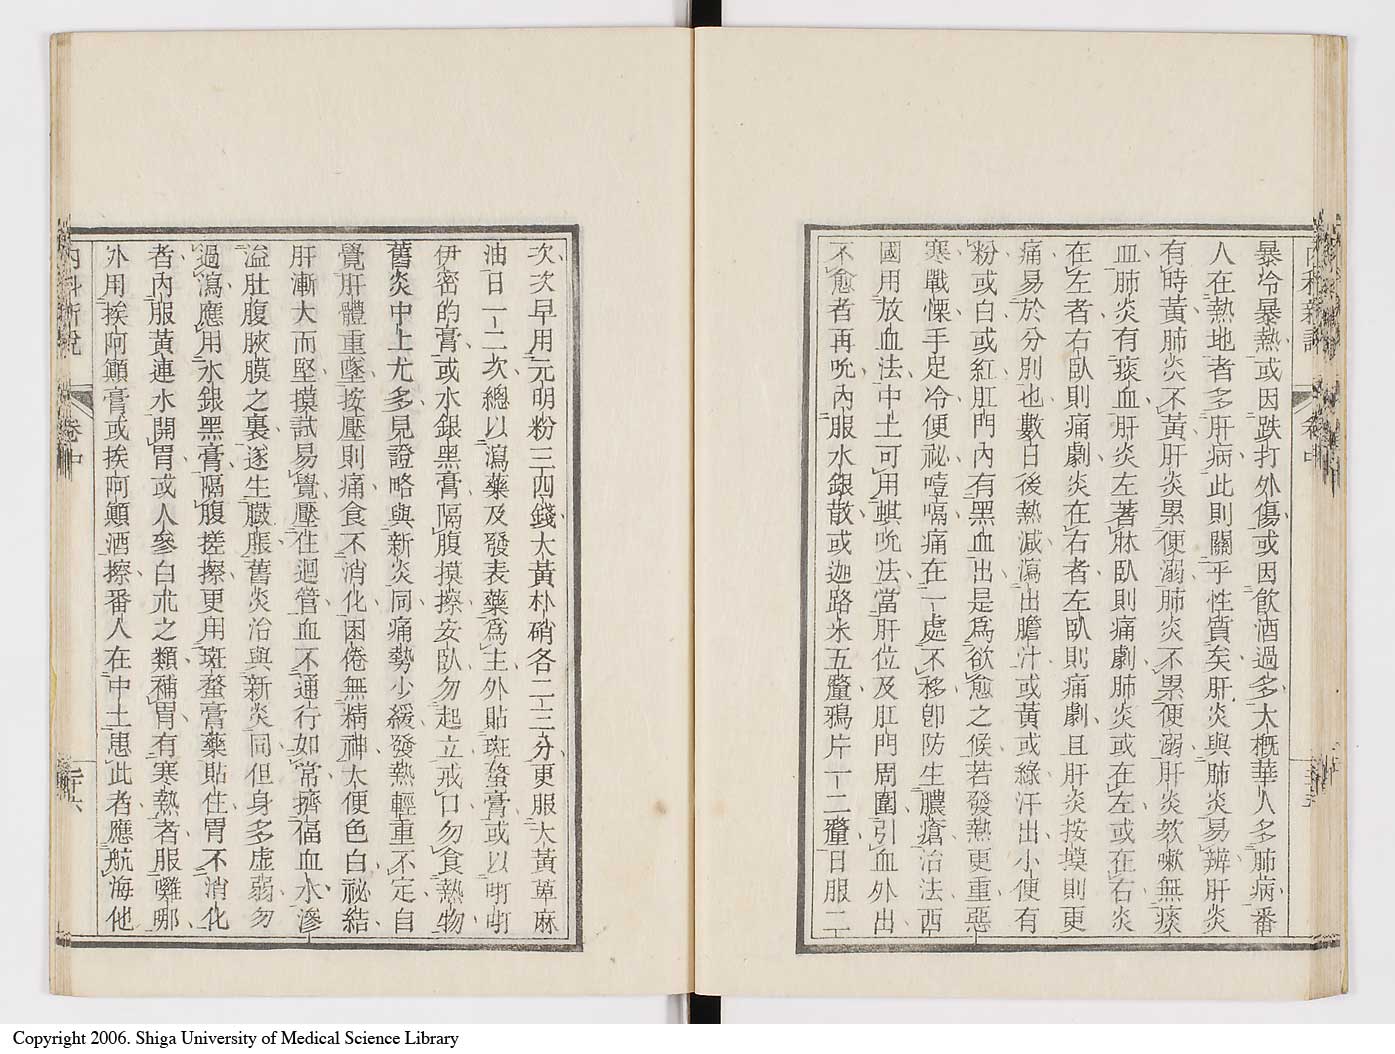 暴冷暴熱或因跌打外傷或因飮酒過多大概華人多肺病番
人在熱地者多肝病此則關乎性質矣肝炎與肺炎易辨肝炎
有時黃肺炎不黃肝炎累便溺肺炎不累便溺肝炎欬嗽無痰
血肺炎有痰血肝炎左著牀臥則痛劇肺炎或在左或在右炎
在左者右臥則痛劇炎在右者左臥則痛劇且肝炎按摸則更
痛易於分別也數日後熱減瀉出膽汁或黃或綠汗出小便有
粉或白或紅肛門內有黑血出是爲欲愈之候若發熱更重惡
寒戰慄手足冷便祕噎嗝痛在一處不移卽防生膿瘡治法西
國用放血法中土可用蜞吮法當肝位及肛門周圍引血外出
不愈者再吮內服水銀散或迦路米五釐鴉片一二釐日服二
內科新說
卷中
次次早用元明粉三四錢大黃朴硝各二三分更服大黃萆麻
油日一二次總以瀉藥及發表藥爲主外貼斑蝥膏或以哷哷
伊密的膏或水銀黑膏隔腹摸擦安臥勿起立戒口勿食熱物
舊炎中土尤多見證略與新炎同痛勢少緩發熱輕重不定自
覺肝體重墜按壓則痛食不消化困倦無精神大便色白祕結
肝漸大而堅摸試易覺壓住迴管血不通行如常擠偪血水滲
溢肚腹脥膜之裏遂生臌脹舊炎治與新炎同但身多虛弱勿
過瀉應用水銀黑膏隔腹搓擦更用斑蝥膏藥貼住胃不消化
者內服黃連水開胃或人參白朮之類補胃有寒熱者服囄哪
外用挨阿顚膏或挨阿顚酒擦番人在中土患此者應航海他
內科新說
卷中
二十六
Copyright 2006. Shiga University of Medical Science Library